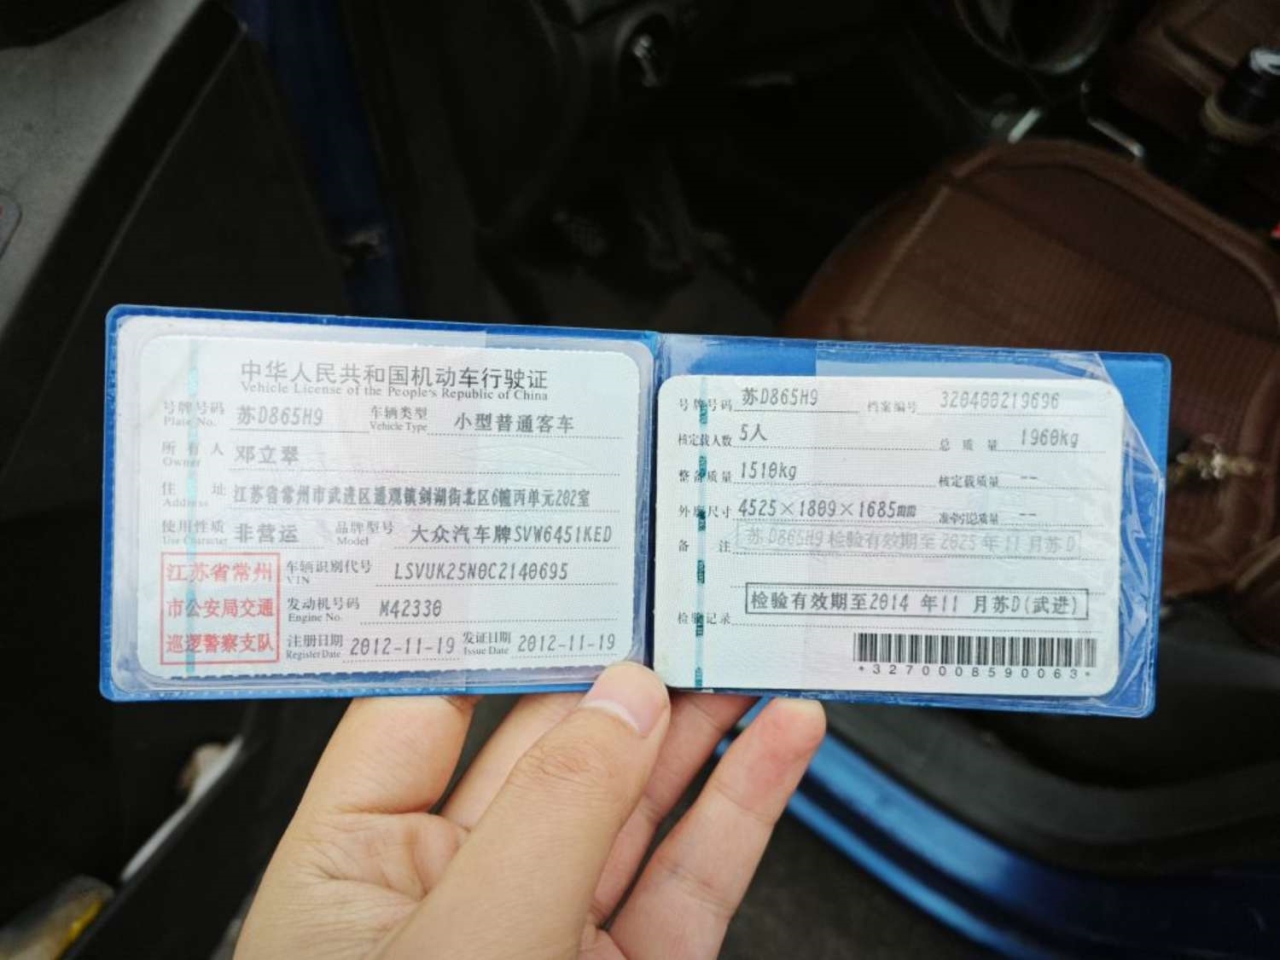 中华人民共和国机动车行驶证
Vehicle License of the People's Republic of China
号牌号码 苏D865H9 车辆类型 小型普通客车
Plate No. Vehicle Type
所有人 邓立翠
Owner
住址 江苏省常州市武进区遥观镇剑湖街北区6幢丙单元202室
Address
使用性质 非营运 品牌型号 大众汽车牌SVW6451KED
Use Character Model
江苏省常州
市公安局交通
巡逻警察支队
车辆识别代号 LSVUK25N0C2140695
VIN
发动机号码 M42330
Engine No.
注册日期 2012-11-19 发证日期 2012-11-19
Register Date Issue Date
号牌号码 苏D865H9 档案编号 320400219696
核定载人数 5人 总质量 1960kg
整备质量 1510kg 核定载质量 --
外廓尺寸 4525×1809×1685mm 准牵引总质量 --
备注 苏D865H9检验有效期至2025年11月苏D
检验有效期至2014年11月苏D(武进)
检验记录
*3270008590063*